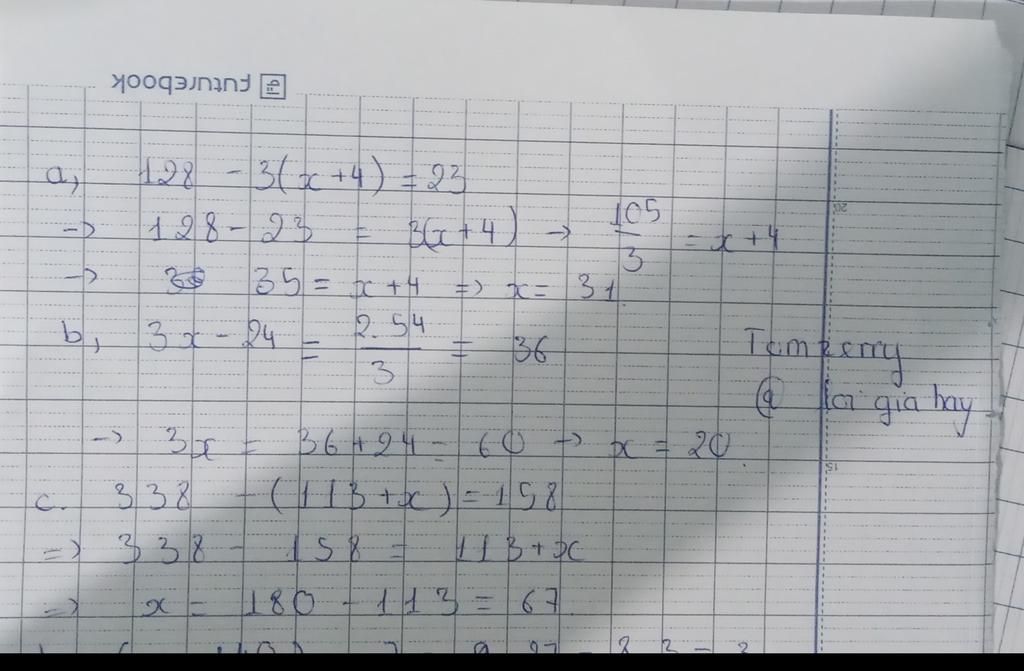 FUTUREBOOK
a, 128 - 3(x+4) = 23
-> 128 - 23 = 3(x+4) -> 105/3 = x+4
-> 35 = x+4 => x = 31
b, 3x - 24 = 2.54/3 = 36
@ loi gia hay
-> 3x = 36+24 = 60 -> x = 20.
c. 338 - (113+x) = 158
=> 338 - 158 = 113+x
=> x = 180 - 113 = 67
20
15